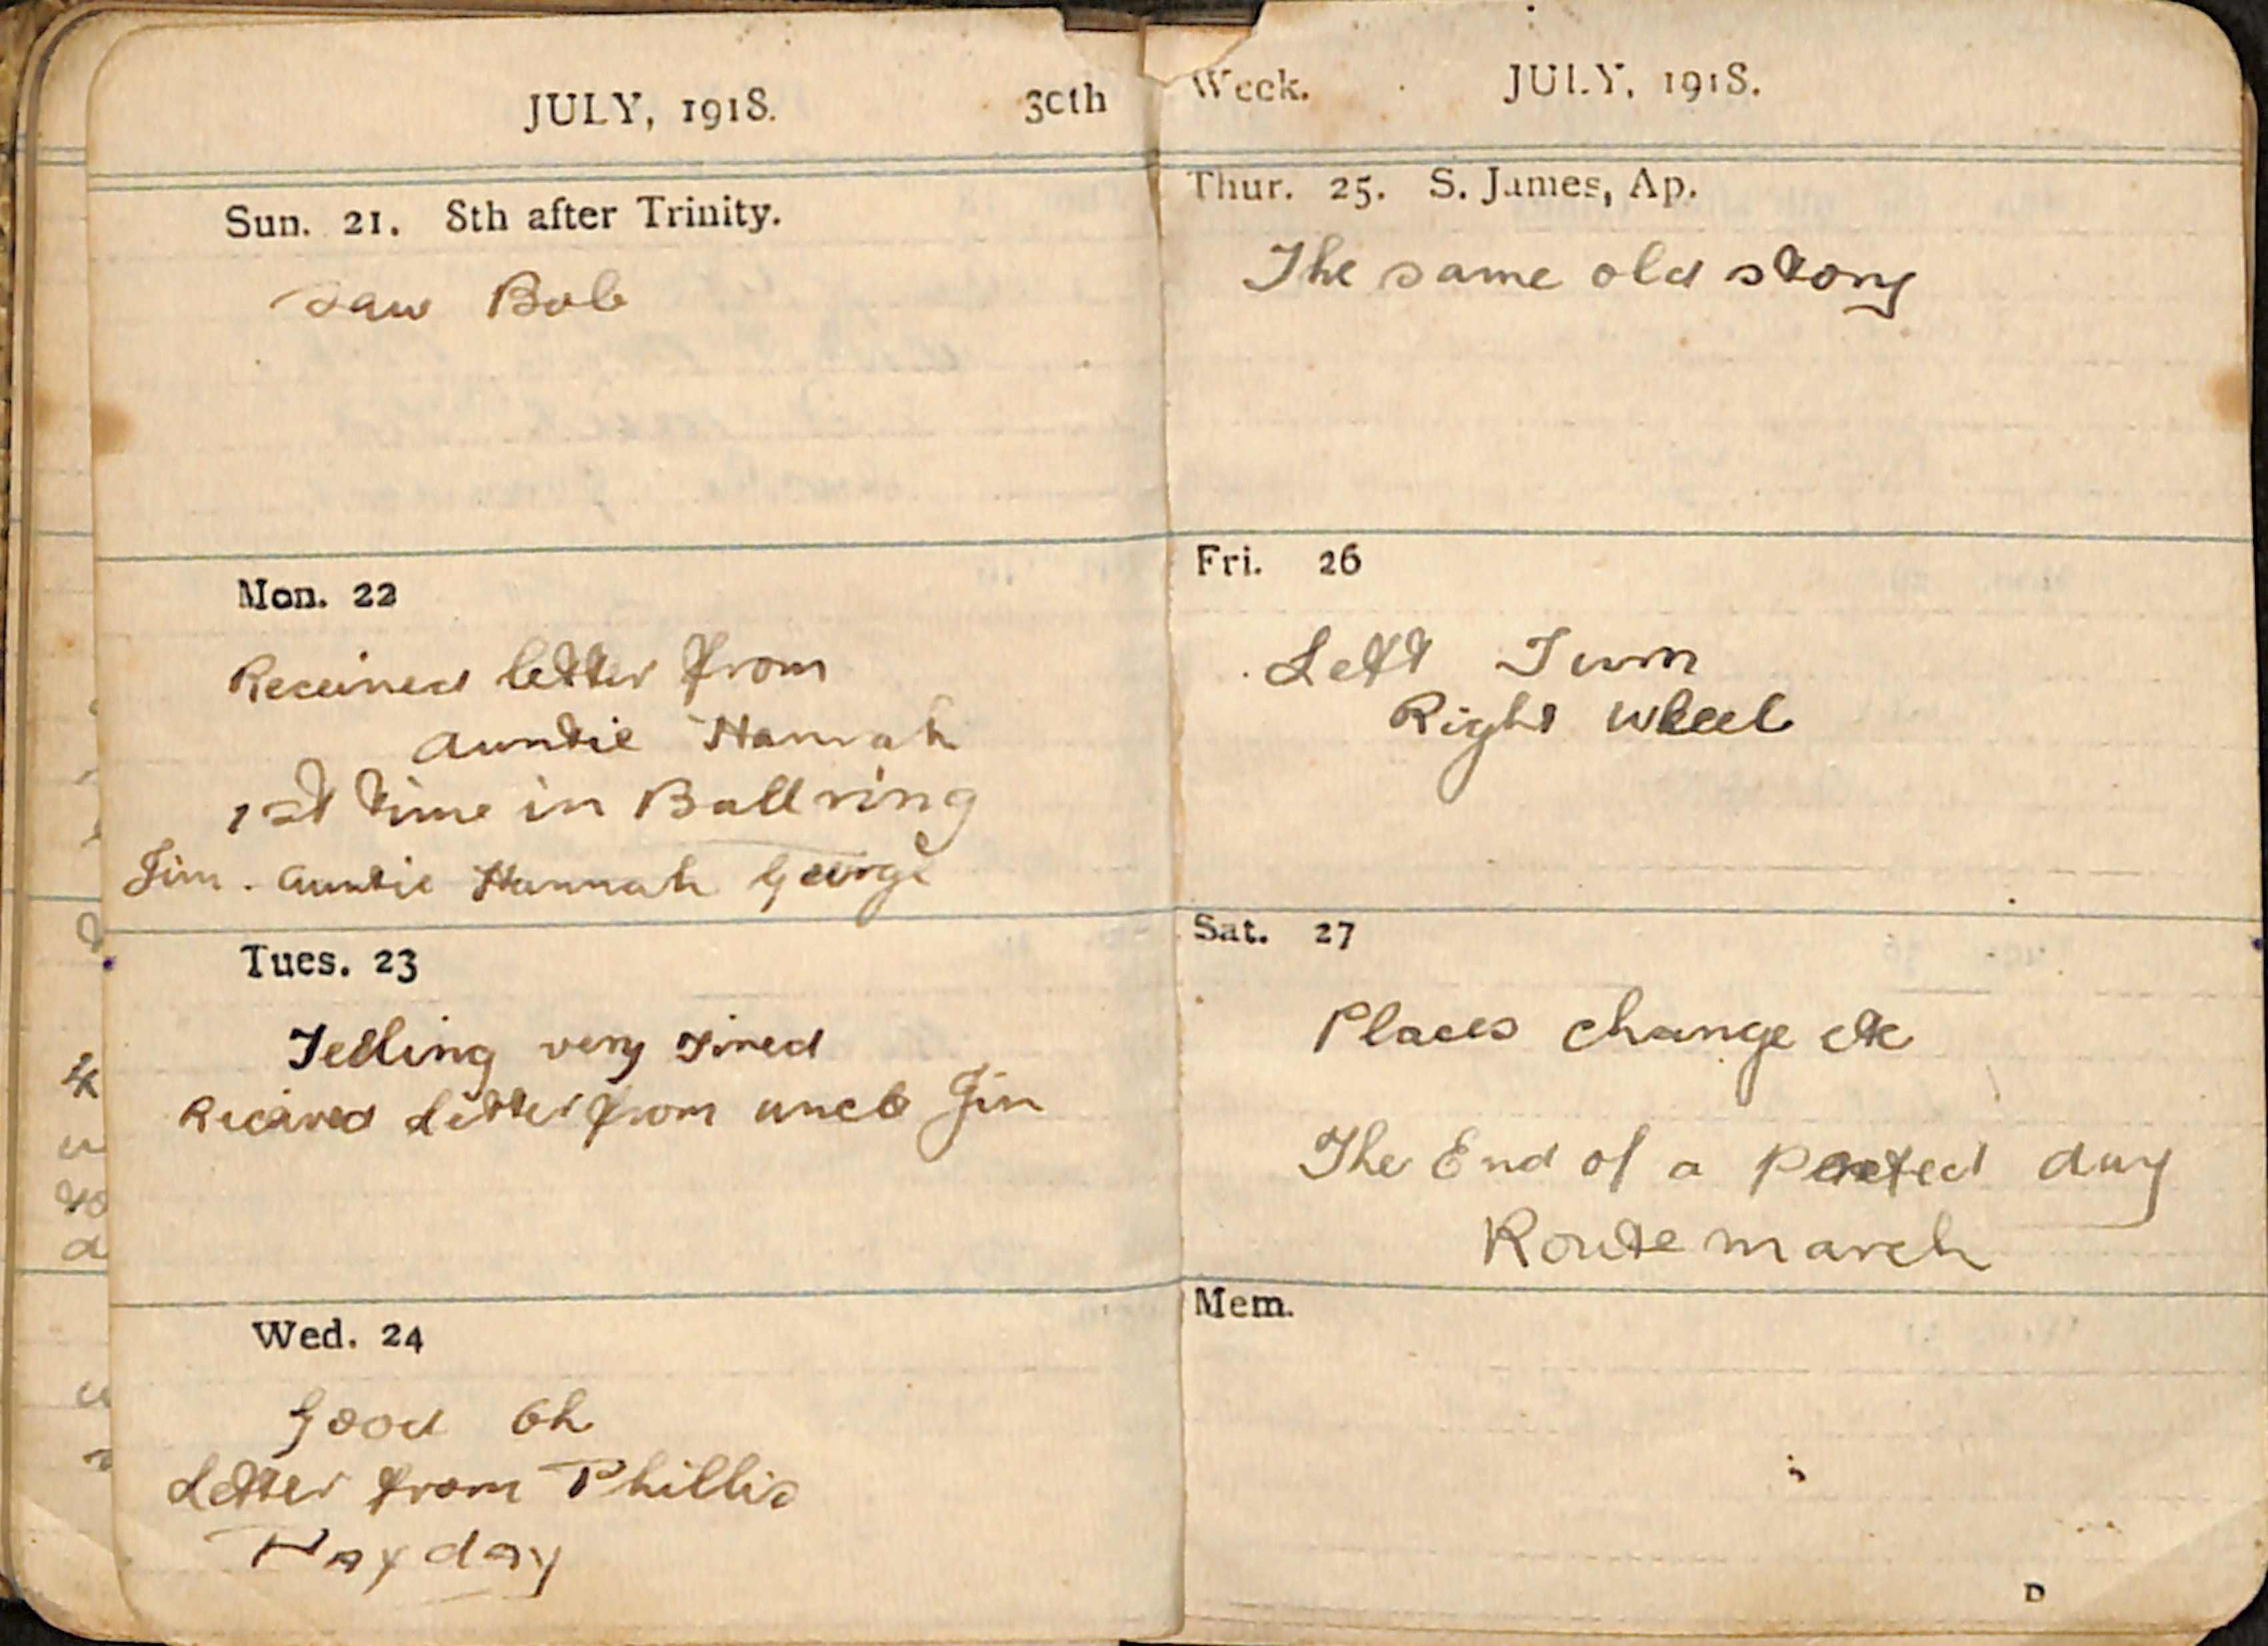 JULY, 1918.
30th
Sun. 21. 8th after Trinity.
Saw Bob
Mon. 22
Received letter from
Auntie Hannah
1st time in Ball ring
Jim. Auntie Hannah George
Tues. 23
very tired
Recieved Letter from uncle Jim
Wed. 24
Good Oh
Letter from Phillis
Payday
Week.
JULY, 1918.
Thur. 25. S. James, Ap.
The same old story
Fri. 26
Left Turn
Right Wheel
Sat. 27
Places change etc
The End of a day
Route march
Mem.
D